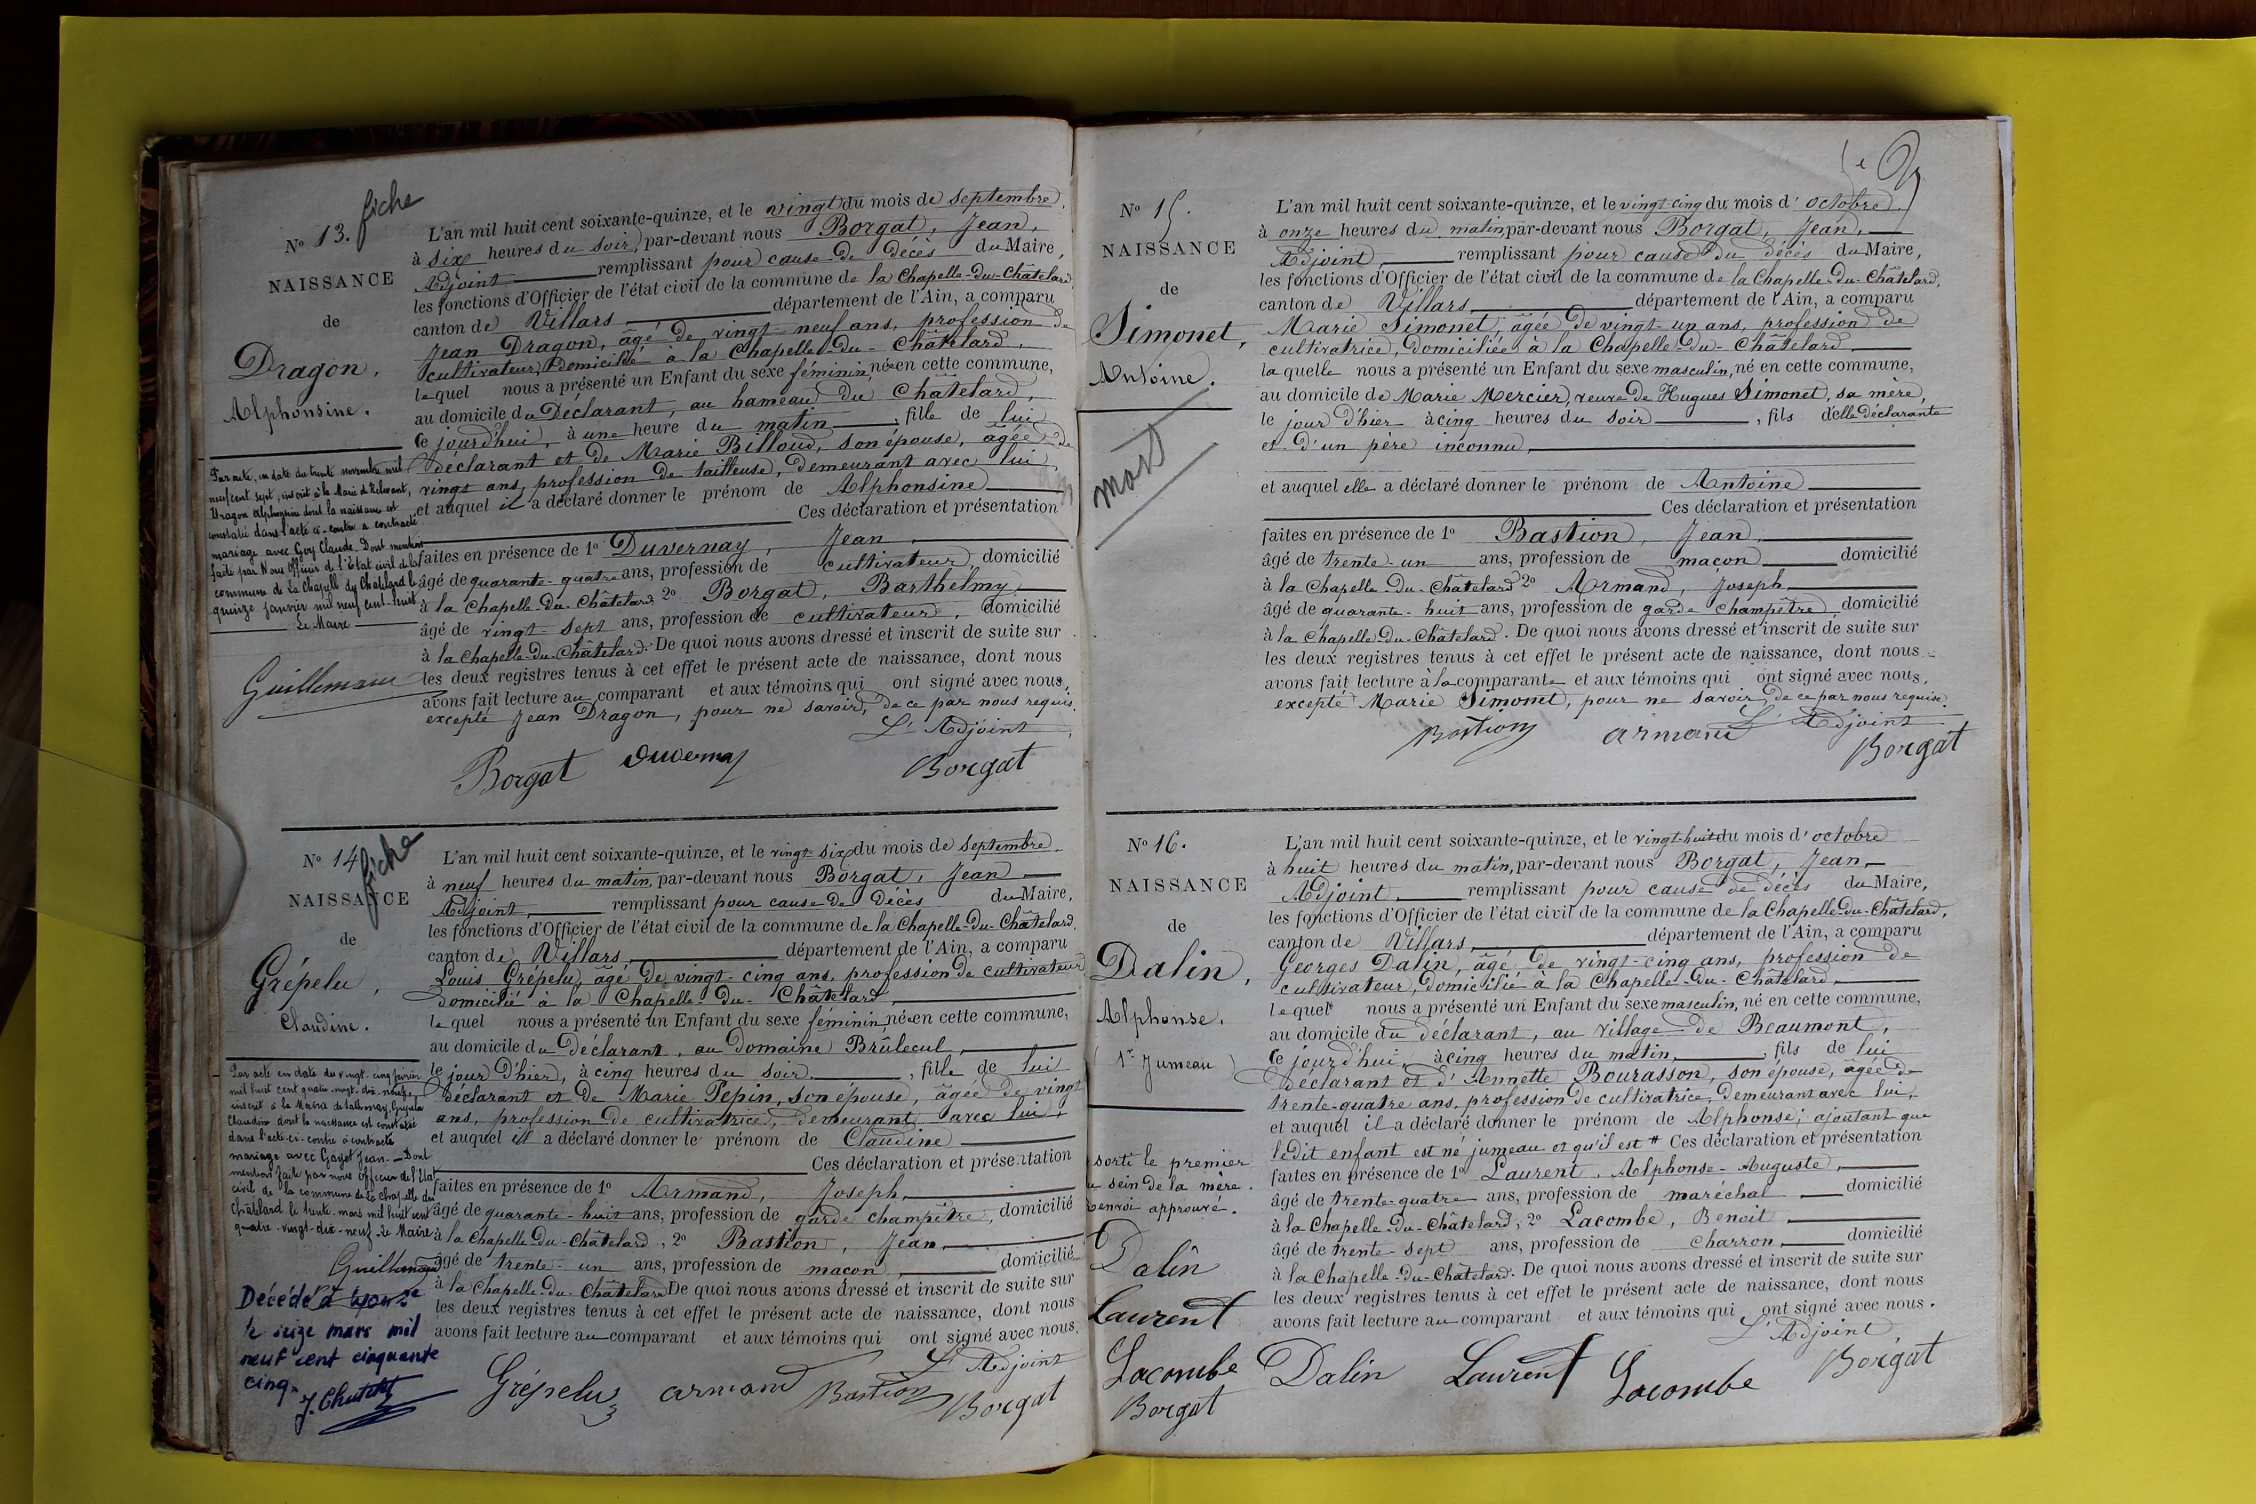 fiche
N° 13.
NAISSANCE
de
Dragon,
Alphonsine.
Par acte, en date du trente novembre mil
neuf cent sept, inscrit à la Mairie de Relevant,
Dragon Alphonsine dont la naissance est
constatée dans l'acte ci-contre a contracté
mariage avec Goy Claude. Dont mention
faite par Nous Officier de l'Etat civil de la
commune de La Chapelle du Chatelard le
quinze janvier mil neuf cent huit
Le Maire
Guillemaur
L'an mil huit cent soixante-quinze, et le vingt du mois de septembre,
à six heures du soir, par-devant nous Borgat, Jean,
Adjoint remplissant pour cause de décès du Maire,
les fonctions d'Officier de l'état civil de la commune de la Chapelle-du-Châtelard,
canton de Villars, département de l'Ain, a comparu
Jean Dragon, âgé de vingt-neuf ans, profession de
cultivateur, domicilié à la Chapelle-du-Châtelard,
lequel nous a présenté un Enfant du sexe féminin, née en cette commune,
au domicile du Déclarant, au hameau du Châtelard,
ce jourd'hui, à une heure du matin, fille de lui
déclarant et de Marie Billoud, son épouse, âgée de
vingt ans, profession de tailleuse, demeurant avec lui,
et auquel il a déclaré donner le prénom de Alphonsine
Ces déclaration et présentation
faites en présence de 1° Duvernay, Jean,
âgé de quarante-quatre ans, profession de cultivateur, domicilié
à la Chapelle-du-Châtelard, 2° Borgat, Barthelmy,
âgé de vingt-sept ans, profession de cultivateur, domicilié
à la Chapelle-du-Châtelard. De quoi nous avons dressé et inscrit de suite sur
les deux registres tenus à cet effet le présent acte de naissance, dont nous
avons fait lecture au comparant et aux témoins qui ont signé avec nous,
excepté Jean Dragon, pour ne savoir, de ce par nous requis.
L'Adjoint,
Borgat Duvernay Borgat
fiche
N° 14
NAISSANCE
de
Grépelu,
Claudine.
Par acte en date du vingt-cinq février
mil huit cent quatre-vingt-dix-neuf,
inscrit à la Mairie de Grépelu
Claudine dont la naissance est constatée
dans l'acte ci-contre a contracté
mariage avec Gayet Jean. — Dont
mention faite par nous officier de l'Etat
civil de la commune de La Chapelle du
Châtelard le trente mars mil huit cent
quatre-vingt-dix-neuf. Le Maire
Guillemaur
Décédé à Lyon
le seize mars mil
neuf cent cinquante
cinq.
L'an mil huit cent soixante-quinze, et le vingt-six du mois de septembre
à neuf heures du matin, par-devant nous Borgat, Jean
Adjoint, remplissant pour cause de décès du Maire,
les fonctions d'Officier de l'état civil de la commune de la Chapelle-du-Châtelard,
canton de Villars, département de l'Ain, a comparu
Louis Grépelu, âgé de vingt-cinq ans, profession de cultivateur
domicilié à la Chapelle-du-Châtelard,
lequel nous a présenté un Enfant du sexe féminin, née en cette commune,
au domicile du Déclarant, au domaine Brûlecul,
le jour d'hier, à cinq heures du soir, fille de lui
déclarant et de Marie Pepin, son épouse, âgée de vingt
ans, profession de cultivatrice, demeurant avec lui,
et auquel il a déclaré donner le prénom de Claudine
Ces déclaration et présentation
faites en présence de 1° Armand, Joseph,
âgé de quarante-huit ans, profession de garde champêtre, domicilié
à la Chapelle-du-Châtelard, 2° Bastion, Jean,
âgé de trente-un ans, profession de maçon, domicilié
à la Chapelle-du-Châtelard De quoi nous avons dressé et inscrit de suite sur
les deux registres tenus à cet effet le présent acte de naissance, dont nous
avons fait lecture au comparant et aux témoins qui ont signé avec nous.
L'Adjoint
Grépelu armand Bastion Borgat
N° 15.
NAISSANCE
de
Simonet,
Antoine.
mort
L'an mil huit cent soixante-quinze, et le vingt-cinq du mois d'octobre,
à onze heures du matin, par-devant nous Borgat, Jean,
Adjoint, remplissant pour cause du décès du Maire,
les fonctions d'Officier de l'état civil de la commune de la Chapelle-du-Châtelard,
canton de Villars, département de l'Ain, a comparu
Marie Simonet, âgée de vingt-un ans, profession de
cultivatrice, domiciliée à la Chapelle-du-Châtelard
la quelle nous a présenté un Enfant du sexe masculin, né en cette commune,
au domicile de Marie Mercier, veuve de Hugues Simonet, sa mère,
le jour d'hier à cinq heures du soir, fils d'elle déclarante
et d'un père inconnu,
et auquel elle a déclaré donner le prénom de Antoine
Ces déclaration et présentation
faites en présence de 1° Bastion, Jean,
âgé de trente-un ans, profession de maçon domicilié
à la Chapelle-du-Châtelard 2° Armand, Joseph
âgé de quarante-huit ans, profession de garde champêtre domicilié
à la Chapelle-du-Châtelard. De quoi nous avons dressé et inscrit de suite sur
les deux registres tenus à cet effet le présent acte de naissance, dont nous
avons fait lecture à la comparante et aux témoins qui ont signé avec nous,
excepté Marie Simonet, pour ne savoir, de ce par nous requise.
L'Adjoint
Bastion armand Borgat
N° 16.
NAISSANCE
de
Dalin,
Alphonse.
(1er Jumeau)
sorti le premier
du sein de la mère.
Renvoi approuvé.
Dalin
Laurent
Lacombe
Borgat
L'an mil huit cent soixante-quinze, et le vingt-huit du mois d'octobre
à huit heures du matin, par-devant nous Borgat, Jean
Adjoint, remplissant pour cause de décès du Maire,
les fonctions d'Officier de l'état civil de la commune de la Chapelle-du-Châtelard,
canton de Villars, département de l'Ain, a comparu
Georges Dalin, âgé de vingt-cinq ans, profession de
cultivateur, domicilié à la Chapelle-du-Châtelard,
lequel nous a présenté un Enfant du sexe masculin, né en cette commune,
au domicile du déclarant, au village de Beaumont,
ce jourd'hui, à cinq heures du matin, fils de lui
déclarant et d'Annette Bourasson, son épouse, âgée de
trente-quatre ans, profession de cultivatrice, demeurant avec lui,
et auquel il a déclaré donner le prénom de Alphonse; ajoutant que
ledit enfant est né jumeau et qu'il est # Ces déclaration et présentation
faites en présence de 1° Laurent, Alphonse-Auguste,
âgé de trente-quatre ans, profession de maréchal domicilié
à la Chapelle-du-Châtelard, 2° Lacombe, Benoit
âgé de trente-sept ans, profession de charron, domicilié
à la Chapelle-du-Châtelard. De quoi nous avons dressé et inscrit de suite sur
les deux registres tenus à cet effet le présent acte de naissance, dont nous
avons fait lecture au comparant et aux témoins qui ont signé avec nous.
L'Adjoint,
Dalin Laurent Lacombe Borgat